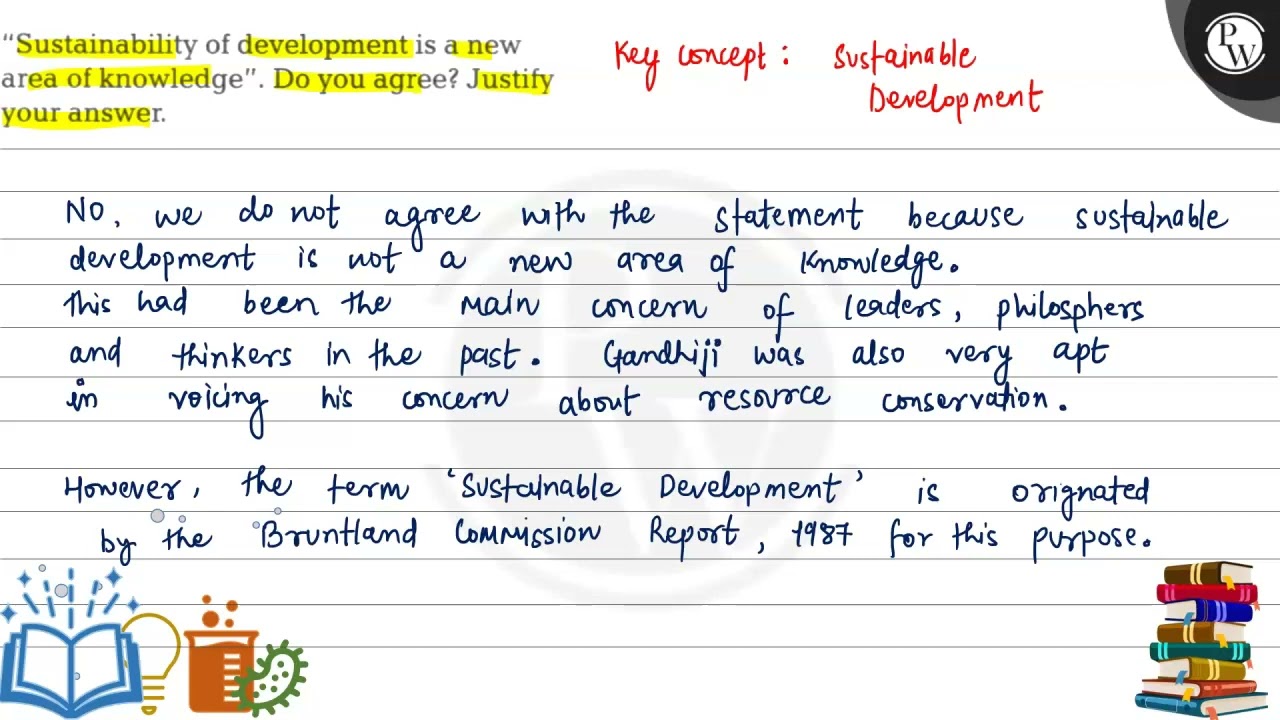 “Sustainability of development is a new
area of knowledge”. Do you agree? Justify
your answer.
Key concept : Sustainable
Development
PW
No, we do not agree with the statement because sustainable
development is not a new area of knowledge.
This had been the main concern of leaders, philosphers
and thinkers in the past. Gandhiji was also very apt
in voicing his concern about resource conservation.
However, the term ‘Sustainable Development’ is orignated
by the Bruntland Commission Report, 1987 for this purpose.